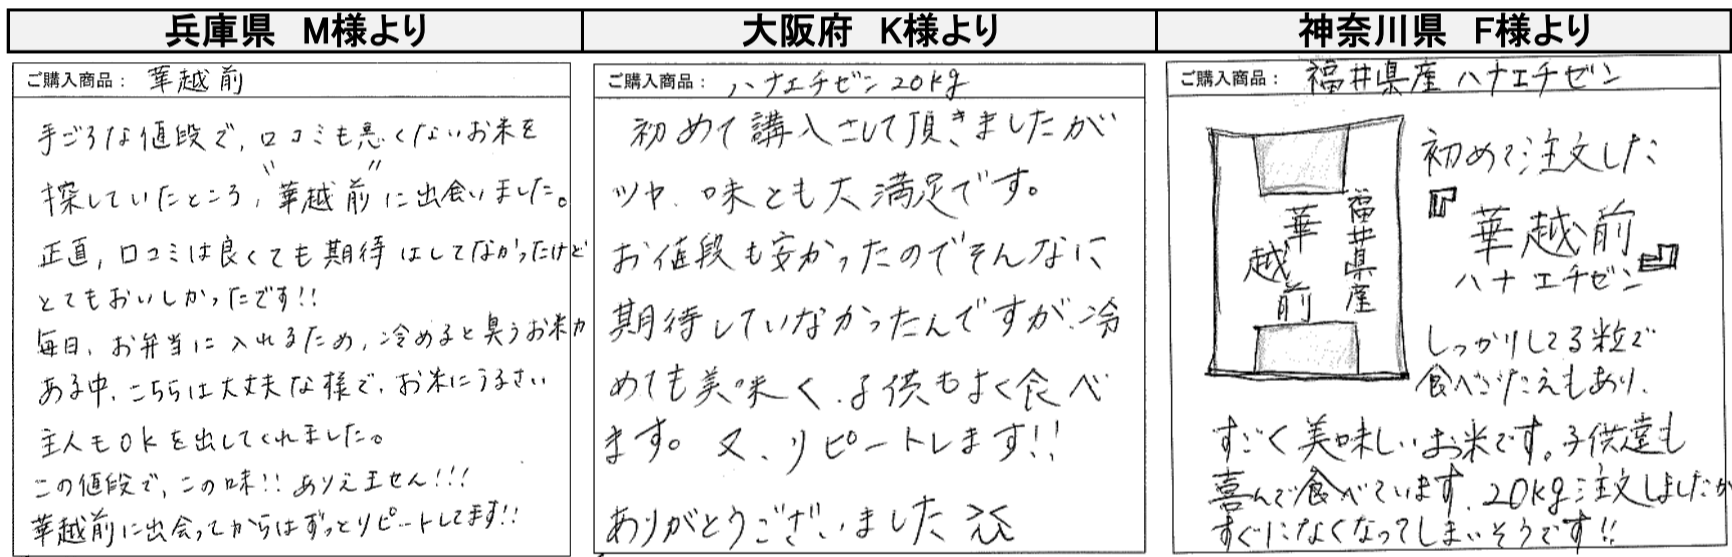 兵庫県　M様より
ご購入商品： 華越前
手ごろな値段で、口コミも悪くないお米を
探していたところ、"華越前"に出会いました。
正直、口コミは良くても期待はしてなかったけど
とてもおいしかったです!!
毎日、お弁当に入れるため、冷めると臭うお米が
ある中、こちらは大丈夫な様で、お米にうるさい
主人もOKを出してくれました。
この値段で、この味!! ありえません!!!
華越前に出会ってからはずっとリピートしてます!!
大阪府　K様より
ご購入商品： ハナエチゼン 20kg
初めて講入さして頂きましたが
ツヤ、味とも大満足です。
お値段も安かったのでそんなに
期待していなかったんですが、冷
めても美味く、子供もよく食べ
ます。又、リピートします!!
ありがとうございました
神奈川県　F様より
ご購入商品： 福井県産 ハナエチゼン
福井県産
華越前
初めて注文した
『華越前
ハナエチゼン』
しっかりしてる粒で
食べごたえもあり、
すごく美味しいお米です。子供達も
喜んで食べています。20kg注文しましたが
すぐになくなってしまいそうです!!